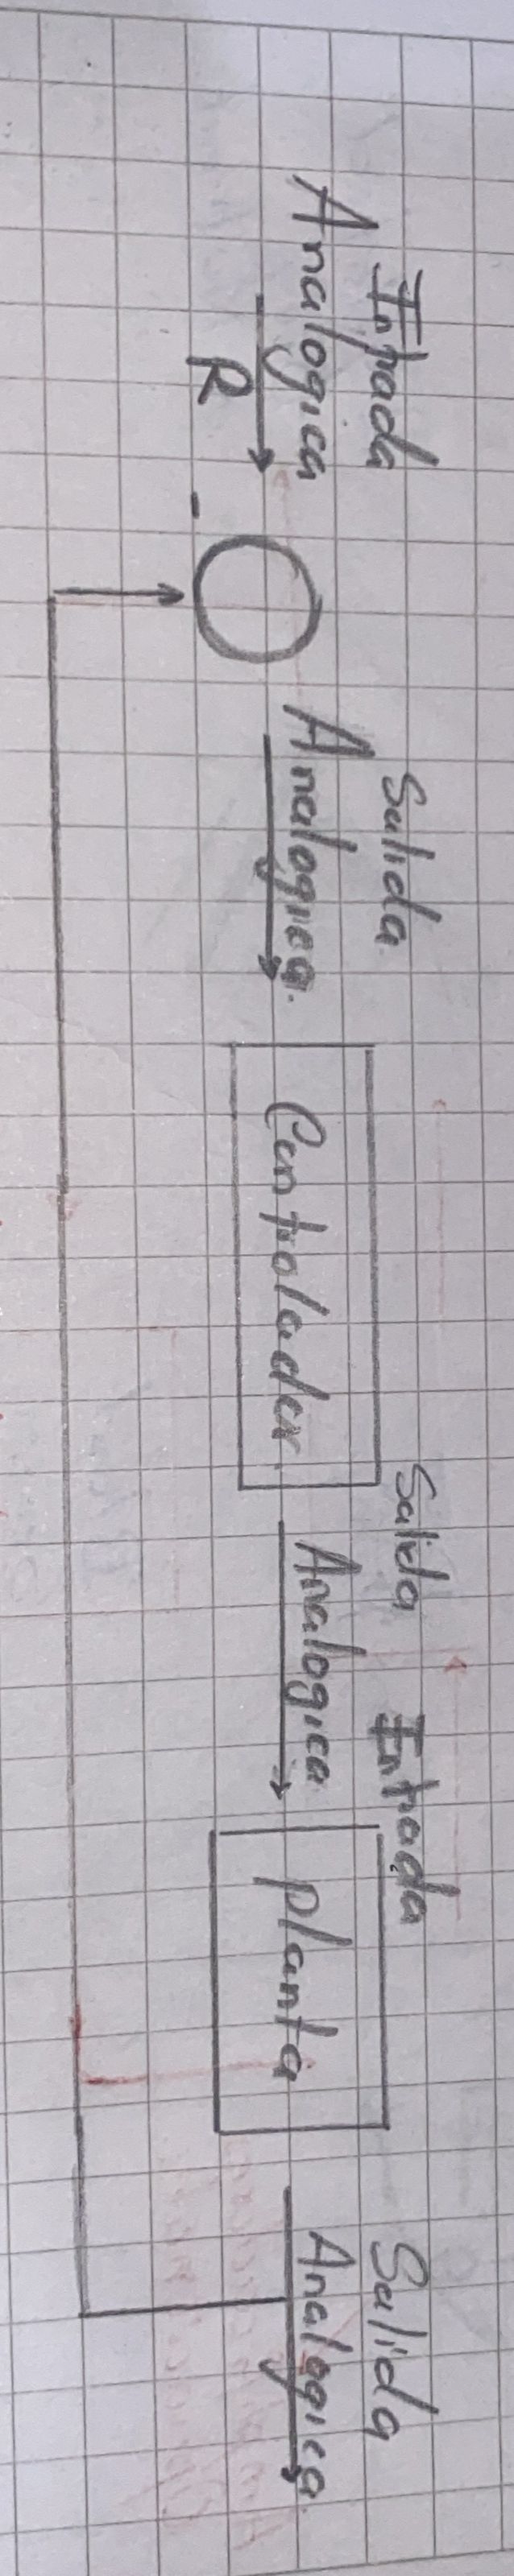 Entrada
Analogica
R
-
Salida
Analogica.
Controlador
Salida
Analogica
Entrada
planta
Salida
Analogica